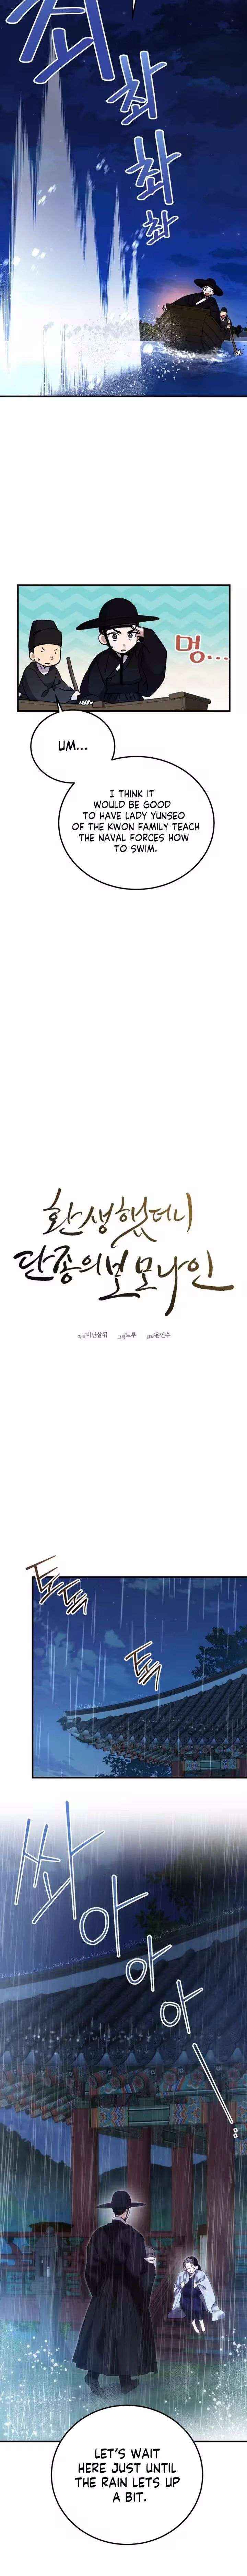 촤
촤
촤
촤
멍...
UM...
I THINK IT
WOULD BE GOOD
TO HAVE LADY YUNSEO
OF THE KWON FAMILY TEACH
THE NAVAL FORCES HOW
TO SWIM.
환생했더니
단종의 보모나인
비단살쾨 트루 윤인수
토독
토독
톡
쏴아아아아...
LET'S WAIT
HERE JUST UNTIL
THE RAIN LETS UP
A BIT.